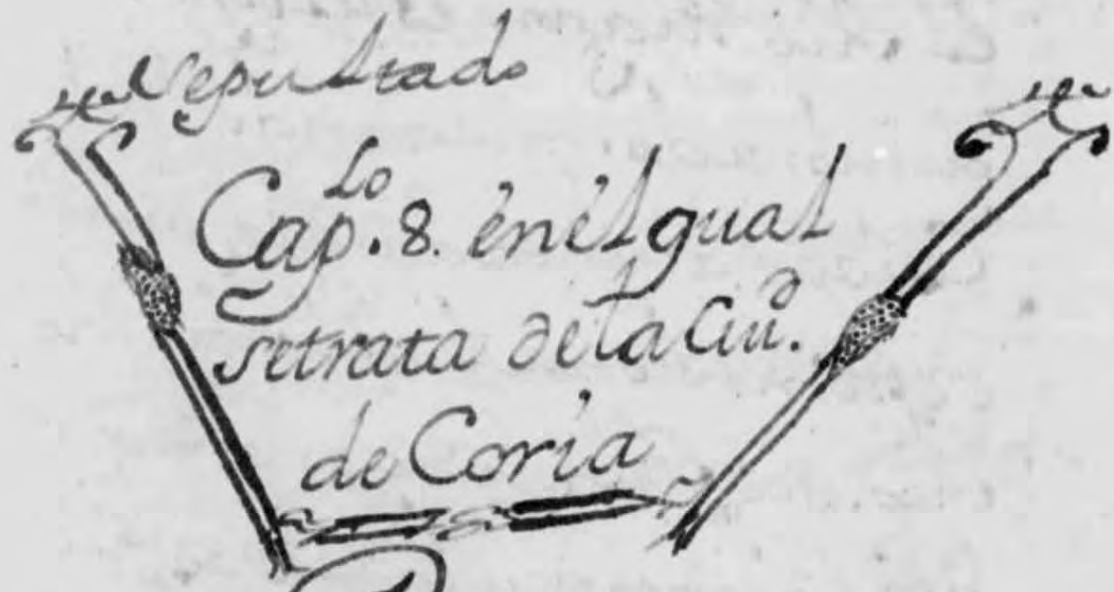 sepultado
Cap.lo 8. en el qual
se trata de la Ciud.
de Coria